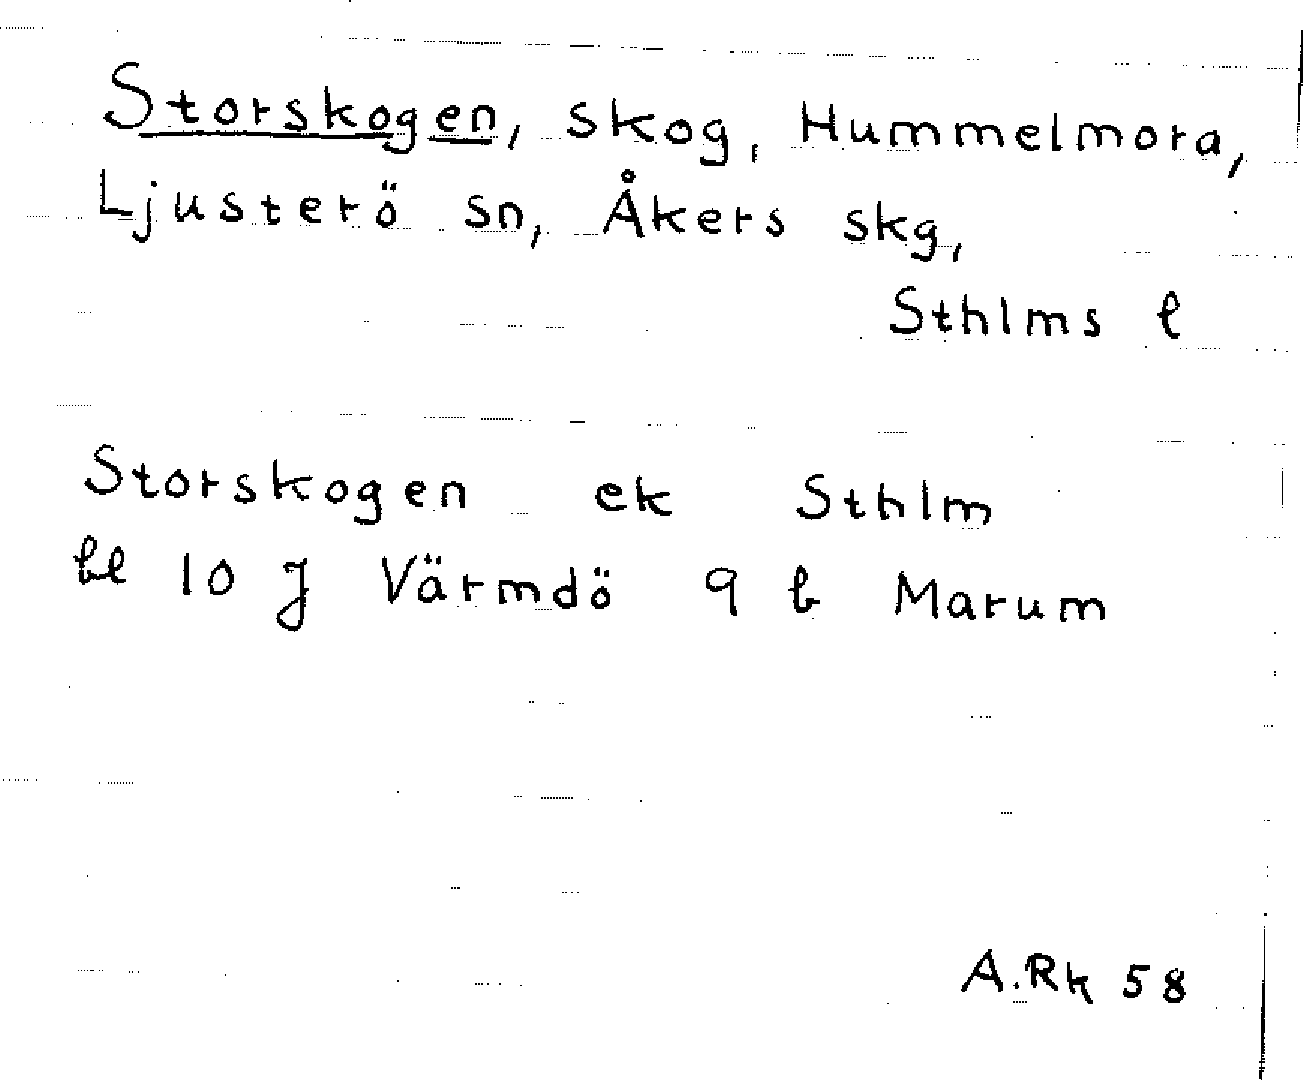 Storskogen, skog, Hummelmora,
Ljusterö sn, Åkers skg,
Sthlms l
Storskogen ek Sthlm
bl 10 J Värmdö 9 b Marum
A.Rk 58